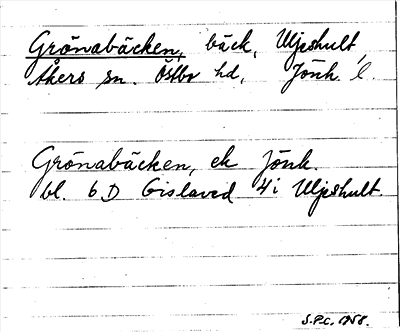 Grönabäcken, bäck, Uljeshult,
Åkers sn. Östbo hd, Jönk. l.
Grönabäcken, ek Jönk.
bl. 6 D Gislaved 4i Uljeshult.
S.P.C. 1958.